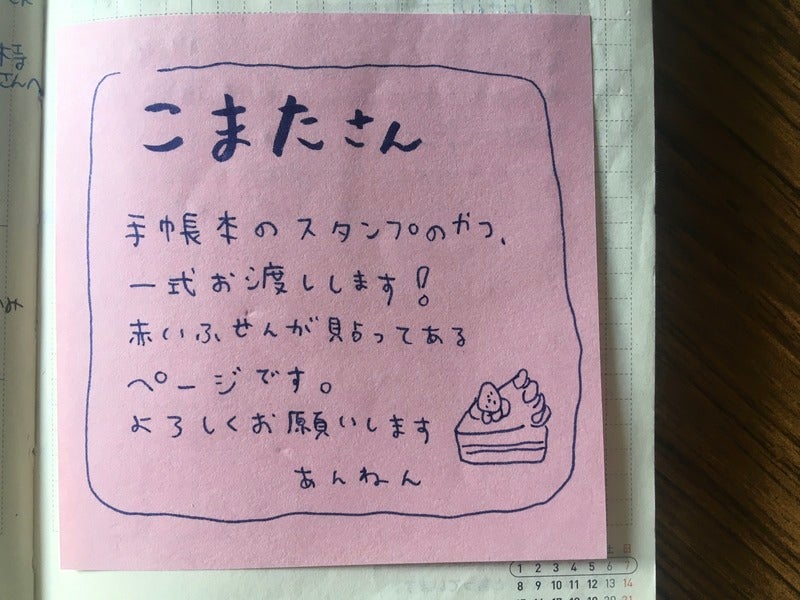 こまたさん
手帳本のスタンプのやつ、
一式お渡しします!
赤いふせんが貼ってある
ページです。
よろしくお願いします
あんねん
さんへ
み
土 日
1 2 3 4 5 6 7
8 9 10 11 12 13 14